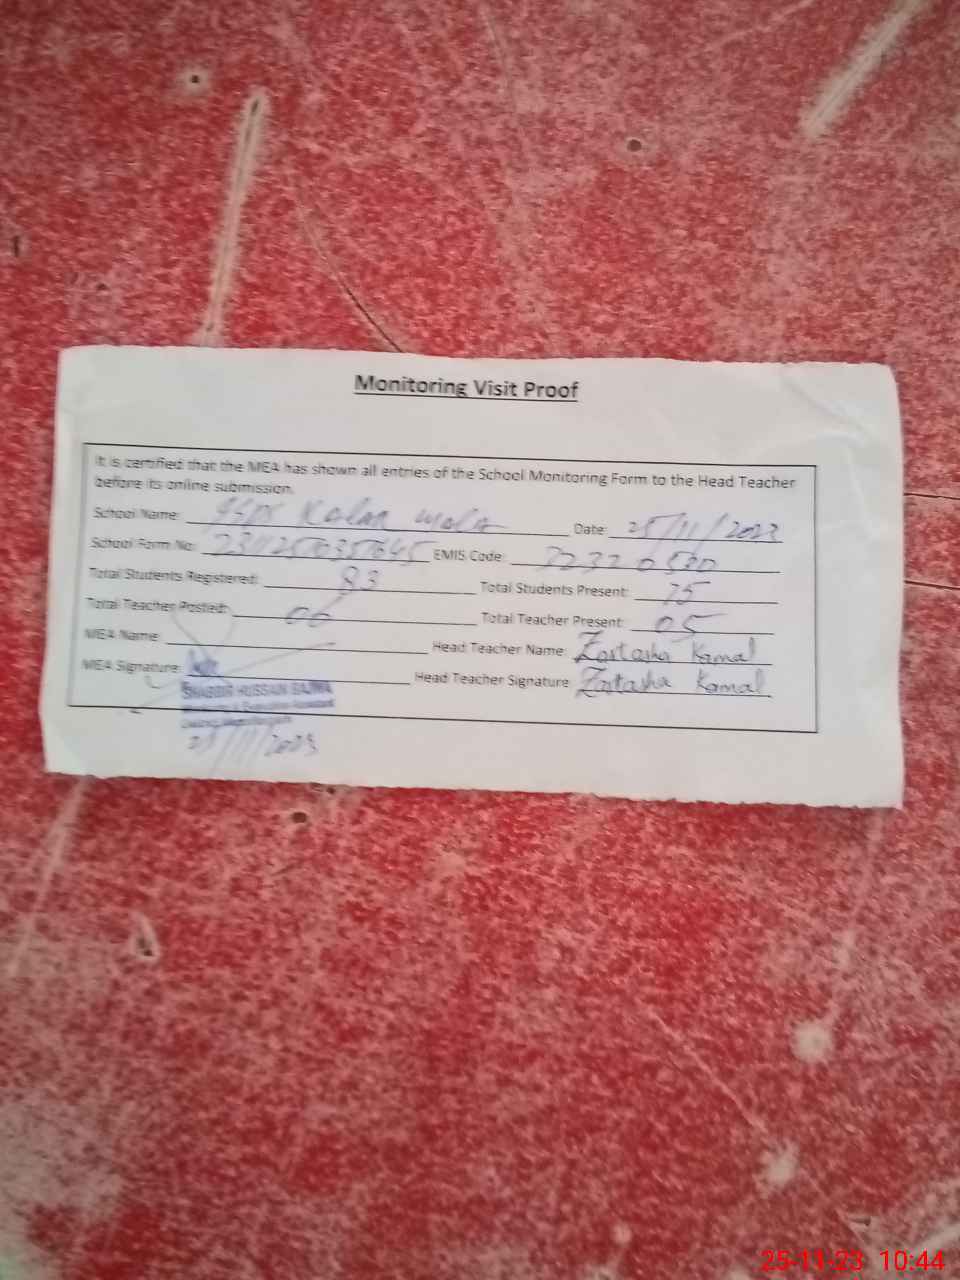 Monitoring Visit Proof
It is certified that the MEA has shown all entries of the School Monitoring Form to the Head Teacher
before its online submission.
School Name: Kalan wala Date: 25/11/2023
School Form No: EMIS Code:
Total Students Registered: 83 Total Students Present: 75
Total Teacher Posted: 06 Total Teacher Present: 05
MEA Name Head Teacher Name: Zartasha Kamal
MEA Signature: Head Teacher Signature: Zartasha Kamal
SHABBIR HUSSAIN BAJWA
25/11/2023
25-11-23 10:44